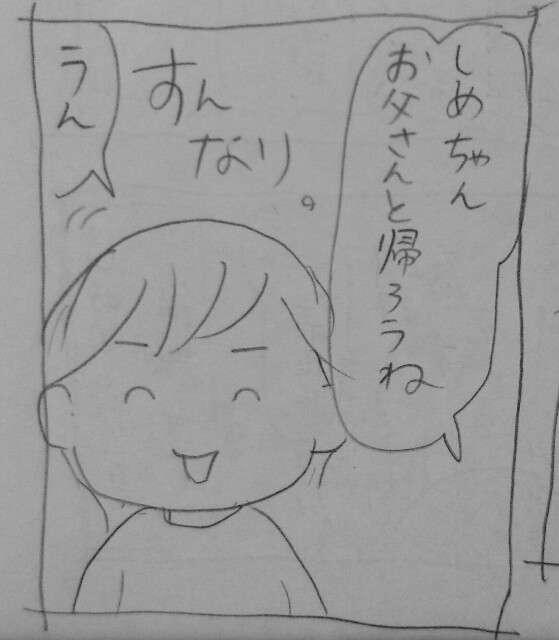 しめちゃん
お父さんと帰ろうね
すん
なり。
うん